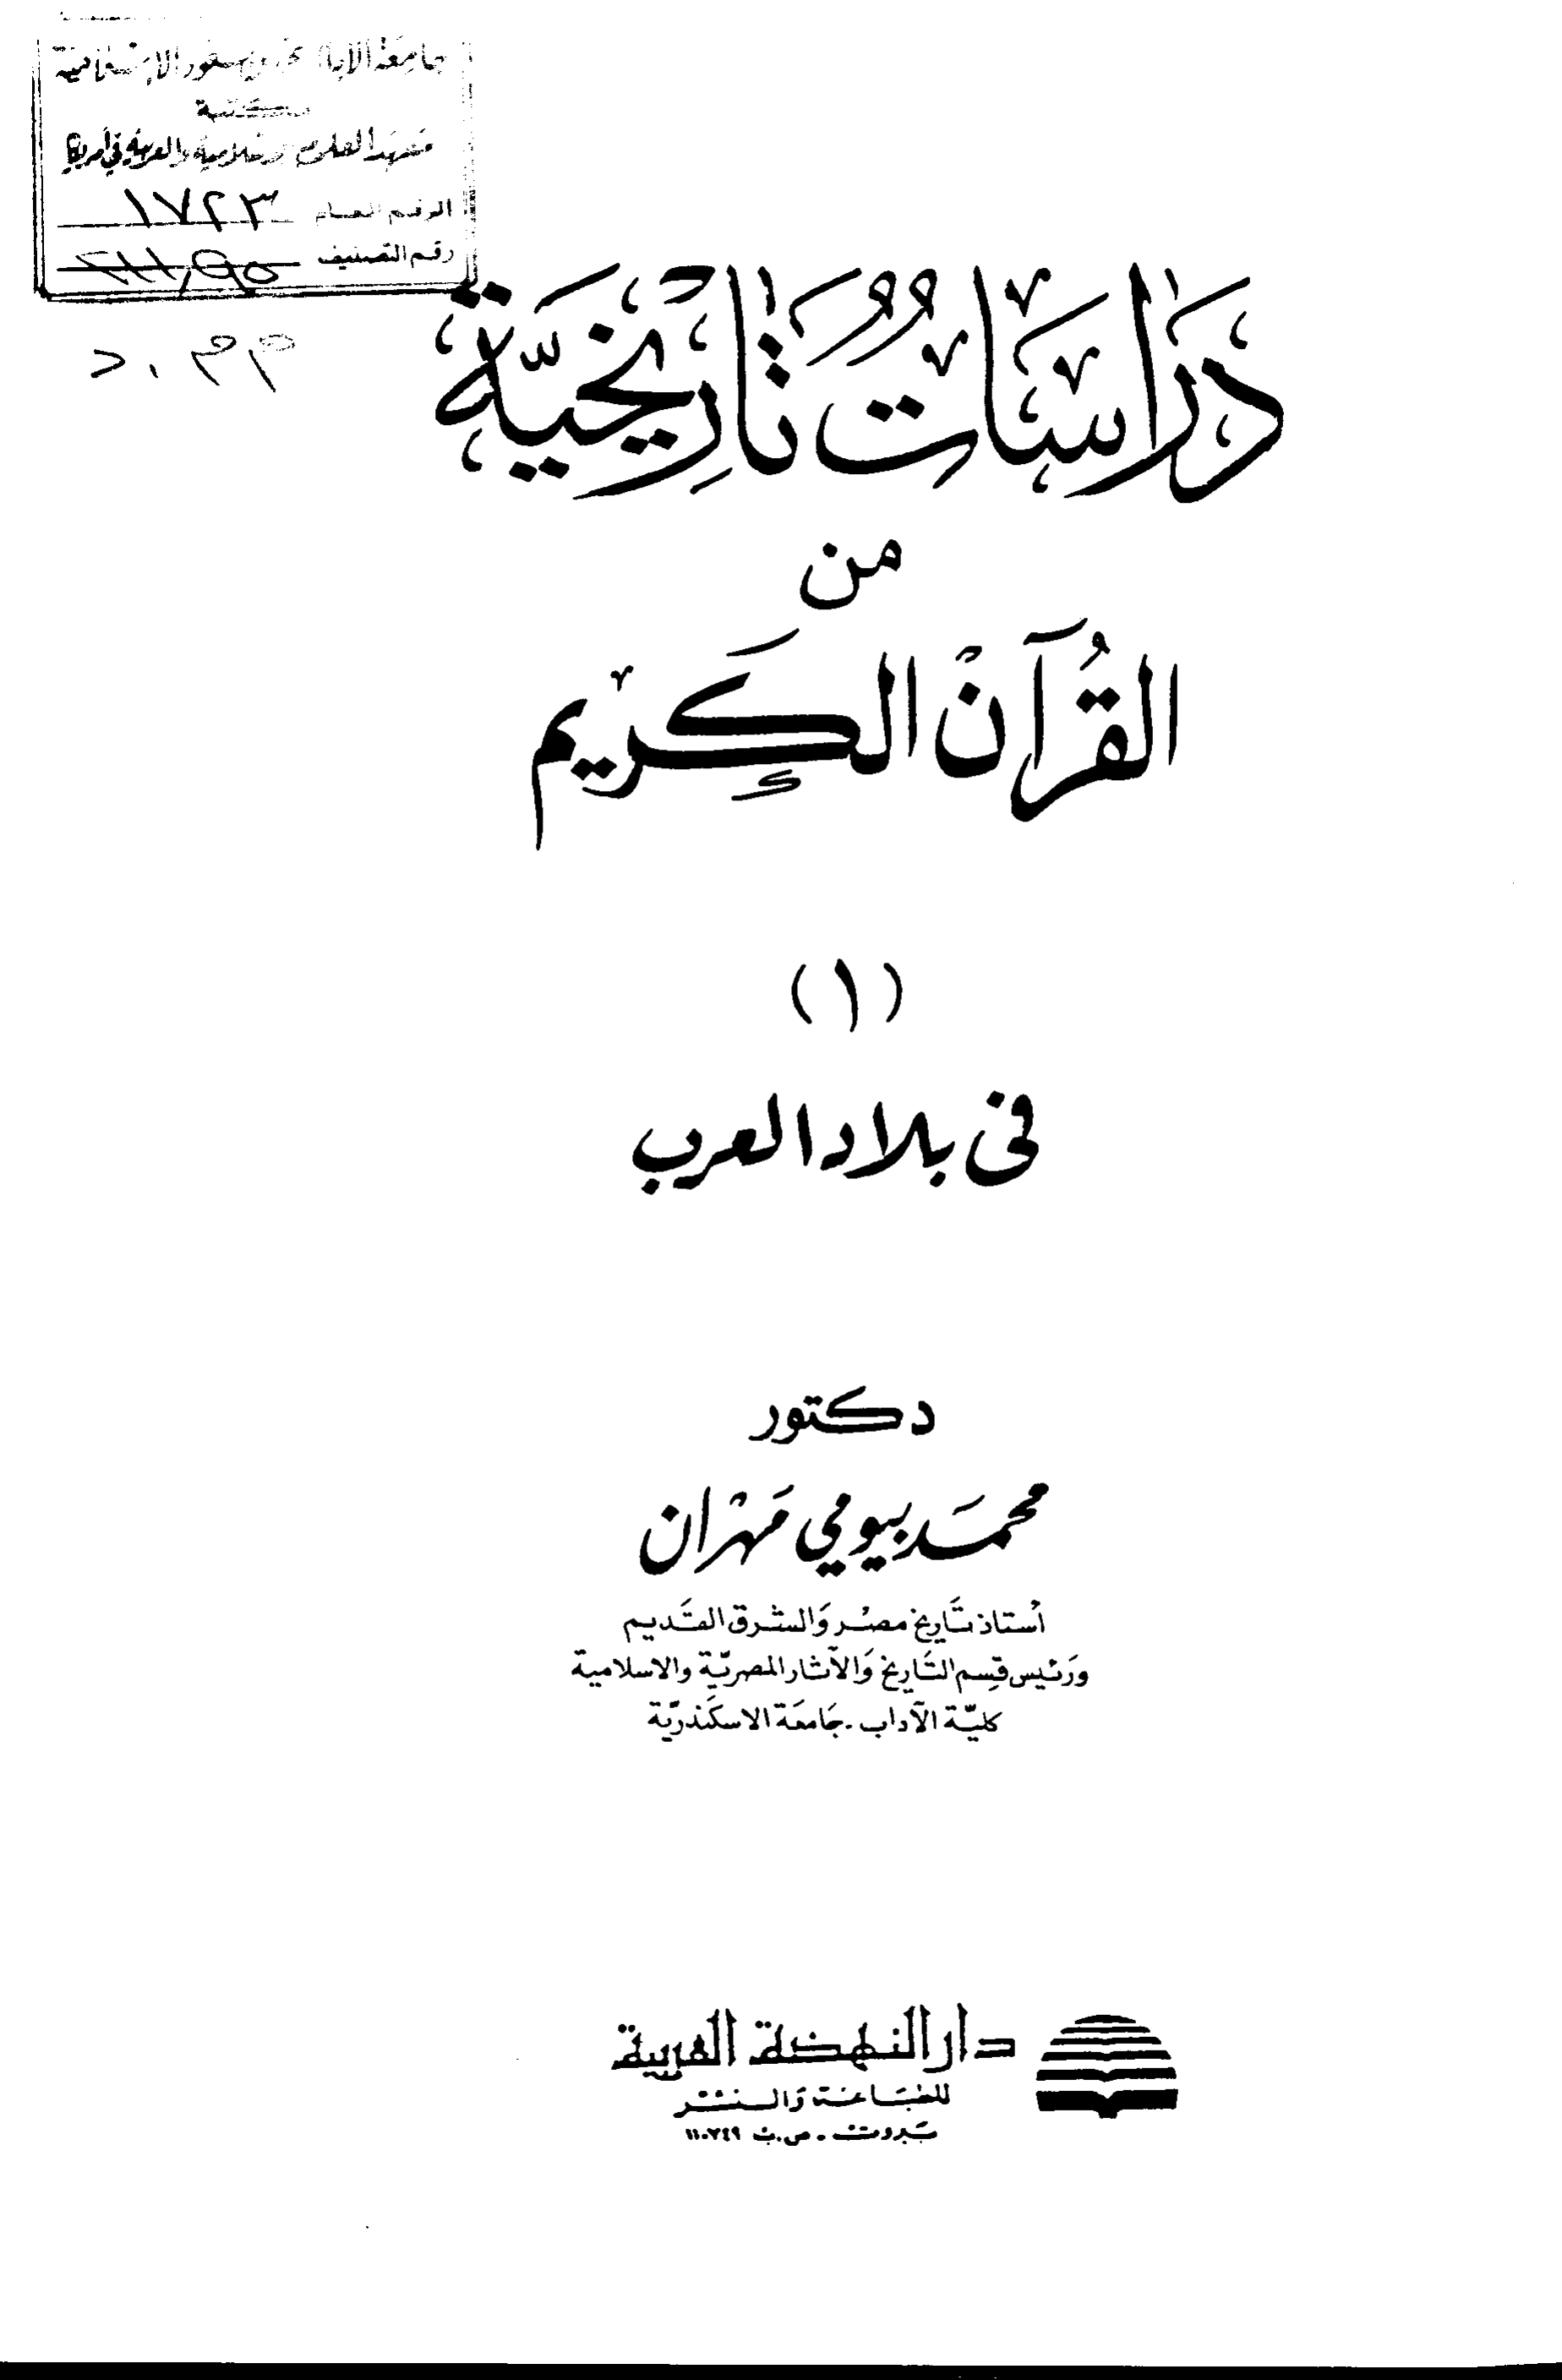 مكتبة
معهد العلوم الإسلامية والعربية في أمريكا
الرقم العام ١٧٢٣
رقم التصنيف
دراسات تاريخية
من
القرآن الكريم
(١)
في بلاد العرب
دكتور
محمد بيومي مهران
أستاذ تاريخ مصر والشرق القديم
ورئيس قسم التاريخ والآثار المصرية والاسلامية
كلية الآداب - جامعة الاسكندرية
دار النهضة العربية
للطباعة والنشر
بيروت - ص.ب ١١٠٧٤٩